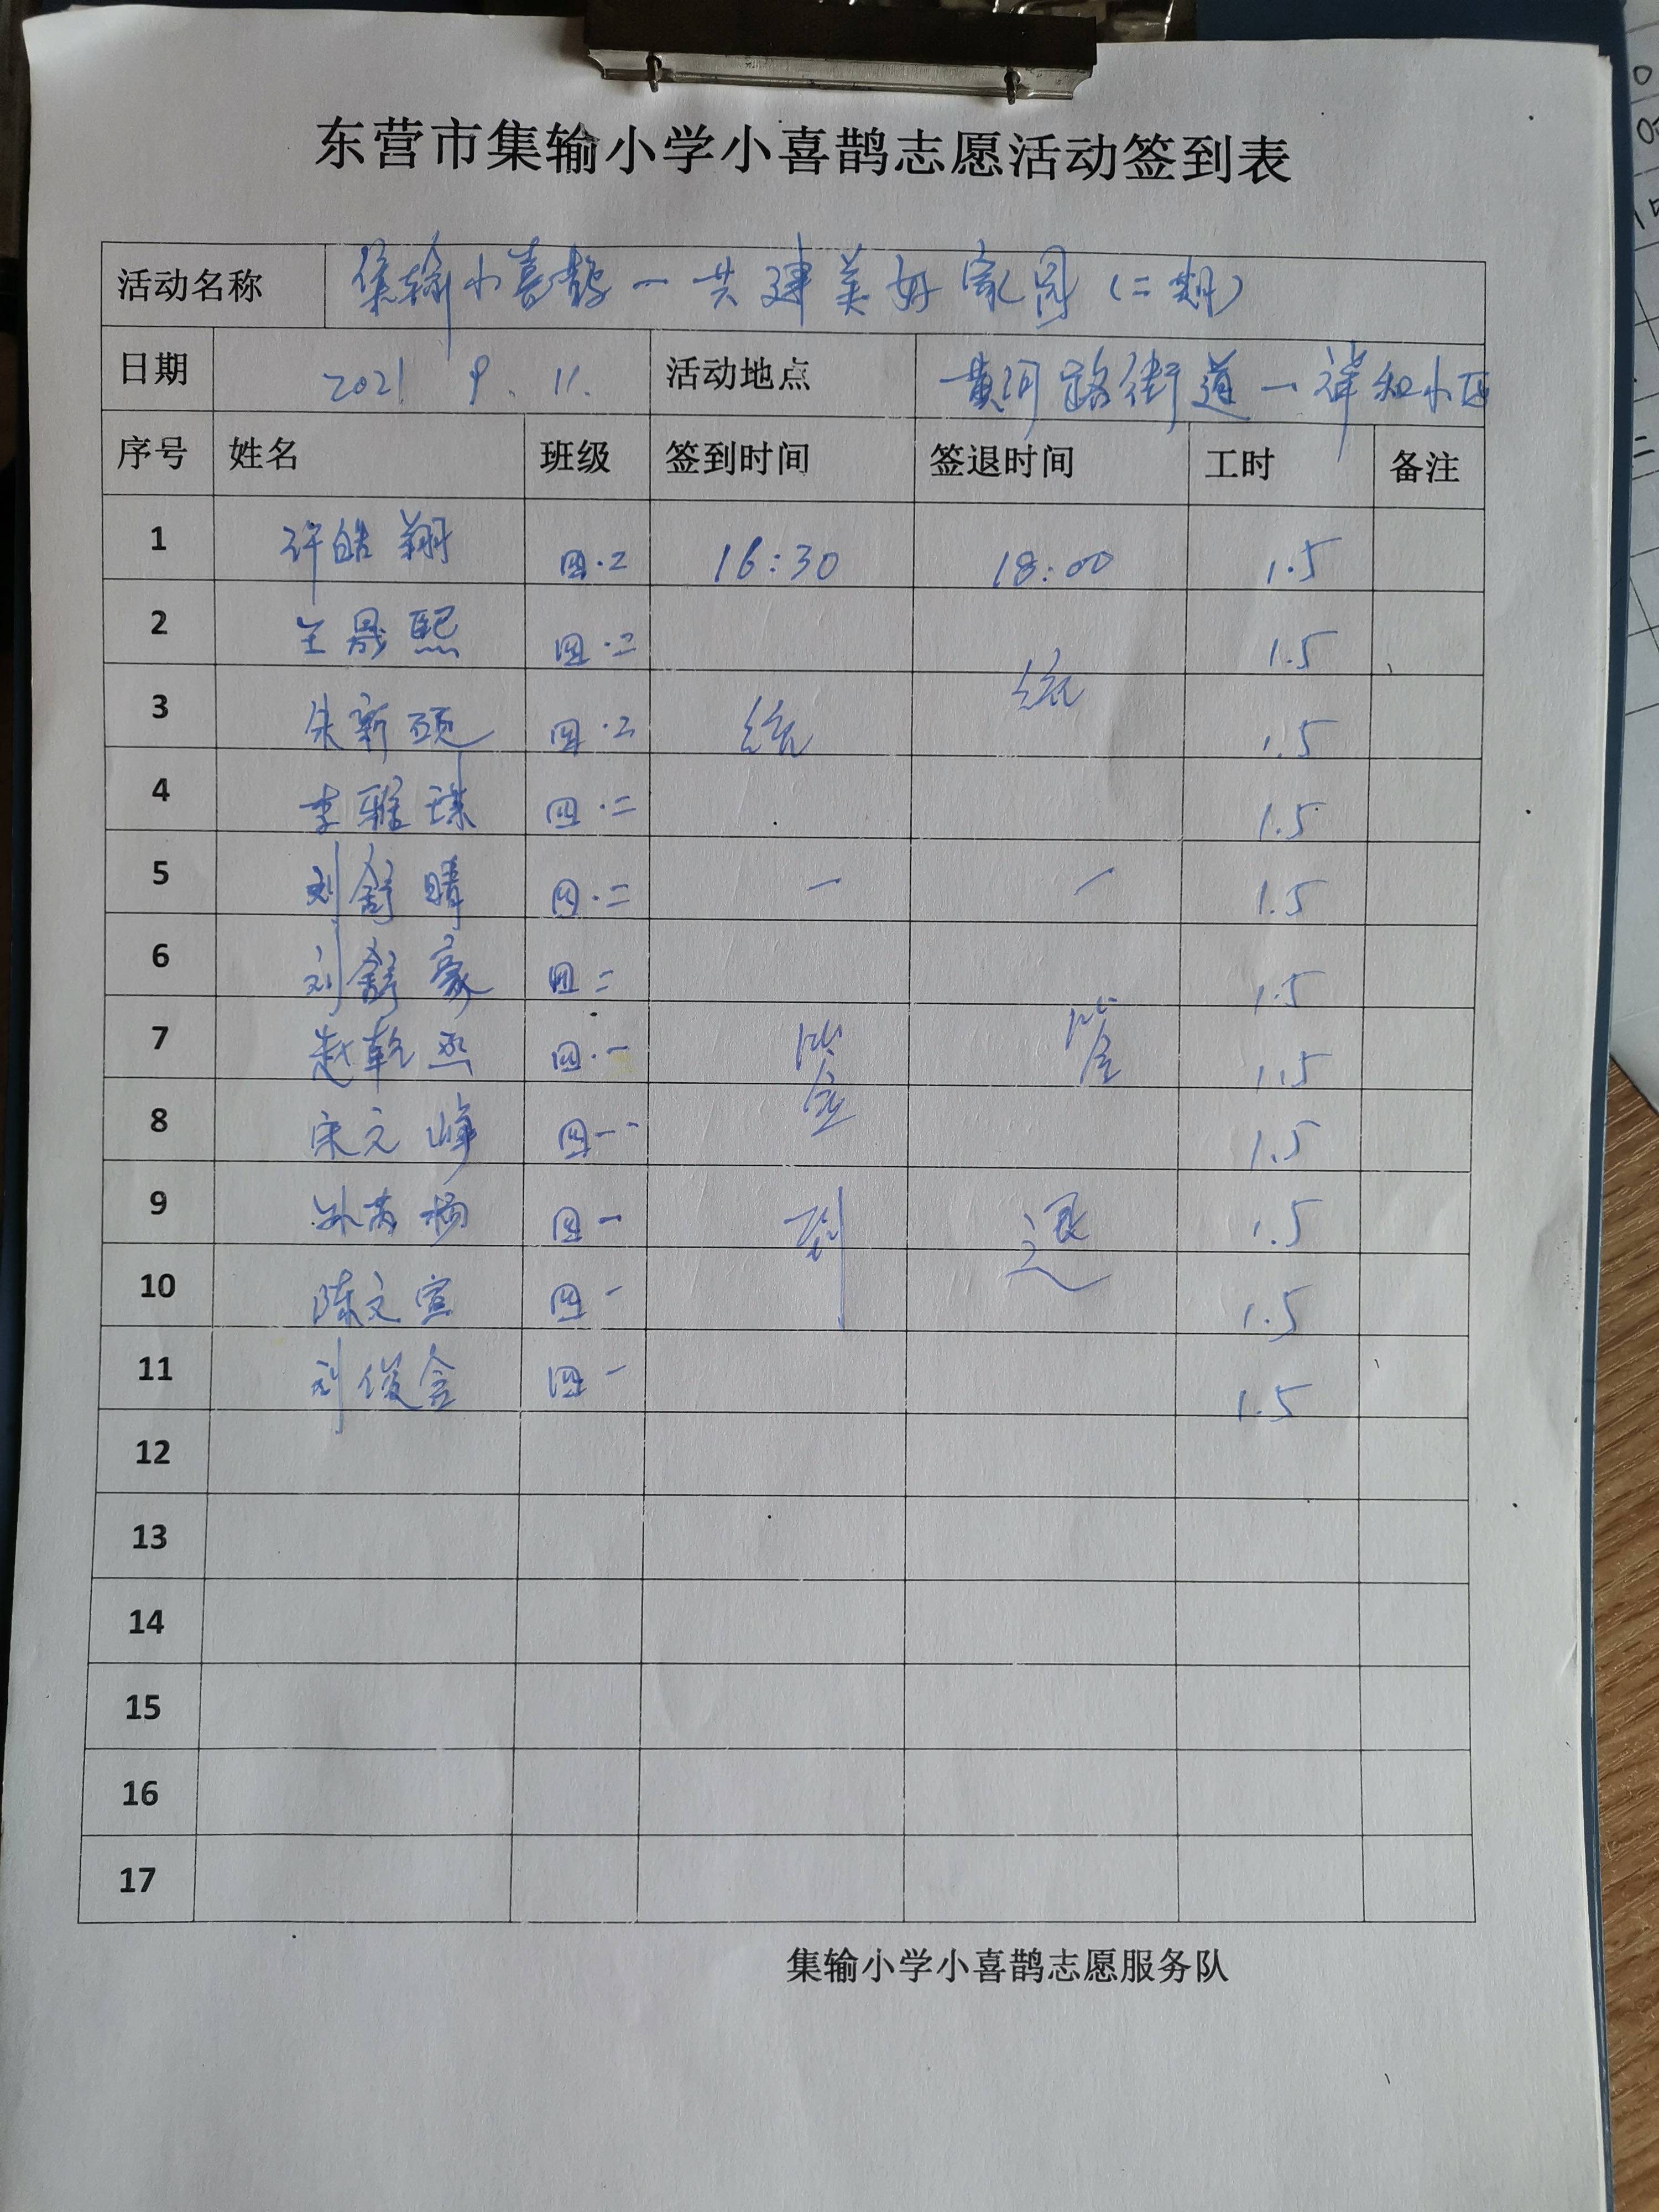 东营市集输小学小喜鹊志愿活动签到表
活动名称 集输小喜鹊一共建美好家园(二期)
日期 2021. 9. 11. 活动地点 黄河路街道一祥和小区
序号 姓名 班级 签到时间 签退时间 工时 备注
1 许皓翔 四.2 16:30 18:00 1.5
2 王晟熙 四.二 1.5
3 朱新硕 四.2 统 统 1.5
4 李雅琪 四.二 1.5
5 刘舒晴 四.二 一 一 1.5
6 刘舒豪 四二 1.5
7 赵乾丞 四.一 签 签 1.5
8 宋文峰 四一 1.5
9 四一 到 退 1.5
10 陈文宣 四一 1.5
11 刘俊含 四一 1.5
12
13
14
15
16
17
集输小学小喜鹊志愿服务队